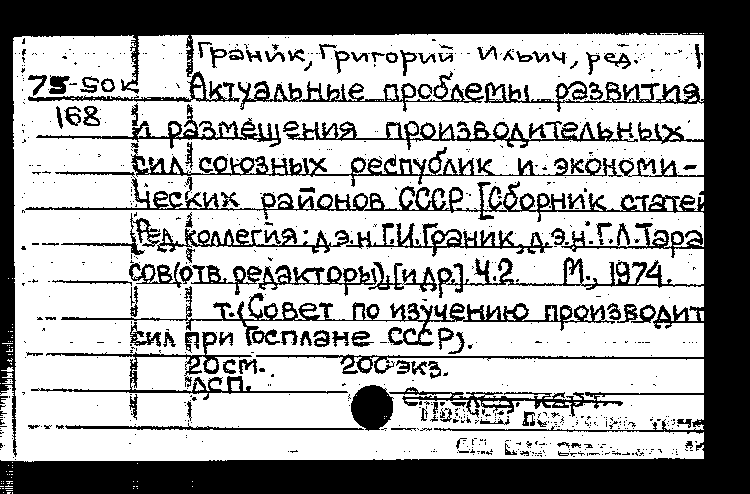 Граник, Григорий Ильич, ред.
75-50к Актуальные проблемы развития
168 и размещения производительных
сил союзных республик и экономи-
ческих районов СССР. [Сборник статей
[Ред. коллегия: д.э.н. Г.И. Граник, д.э.н. Г.Л. Тара
сов (отв. редакторы), [и др]. Ч.2. М., 1974.
т. (Совет по изучению производит
сил при Госплане СССР).
20 см. 200 экз.
ДСП.
См. след. карт.